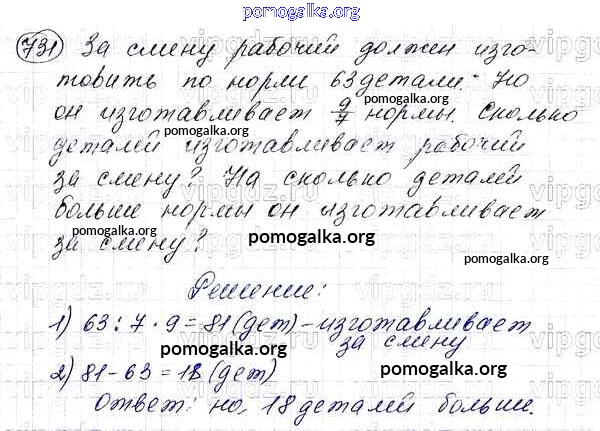 pomogalka.org
731 За смену рабочий должен изго-
товить по норми 63 детали. Но
он изготавливает 9/7 нормы. Сколько
pomogalka.org pomogalka.org
деталей изготавливает рабочий
за смену? На сколько деталей
больше нормы он изготавливает
за смену?
pomogalka.org
Решение:
1) 63 : 7 · 9 = 81 (дет) - изготавливает
за смену
pomogalka.org
2) 81 - 63 = 18 (дет)
pomogalka.org
Ответ: на 18 деталей больше.